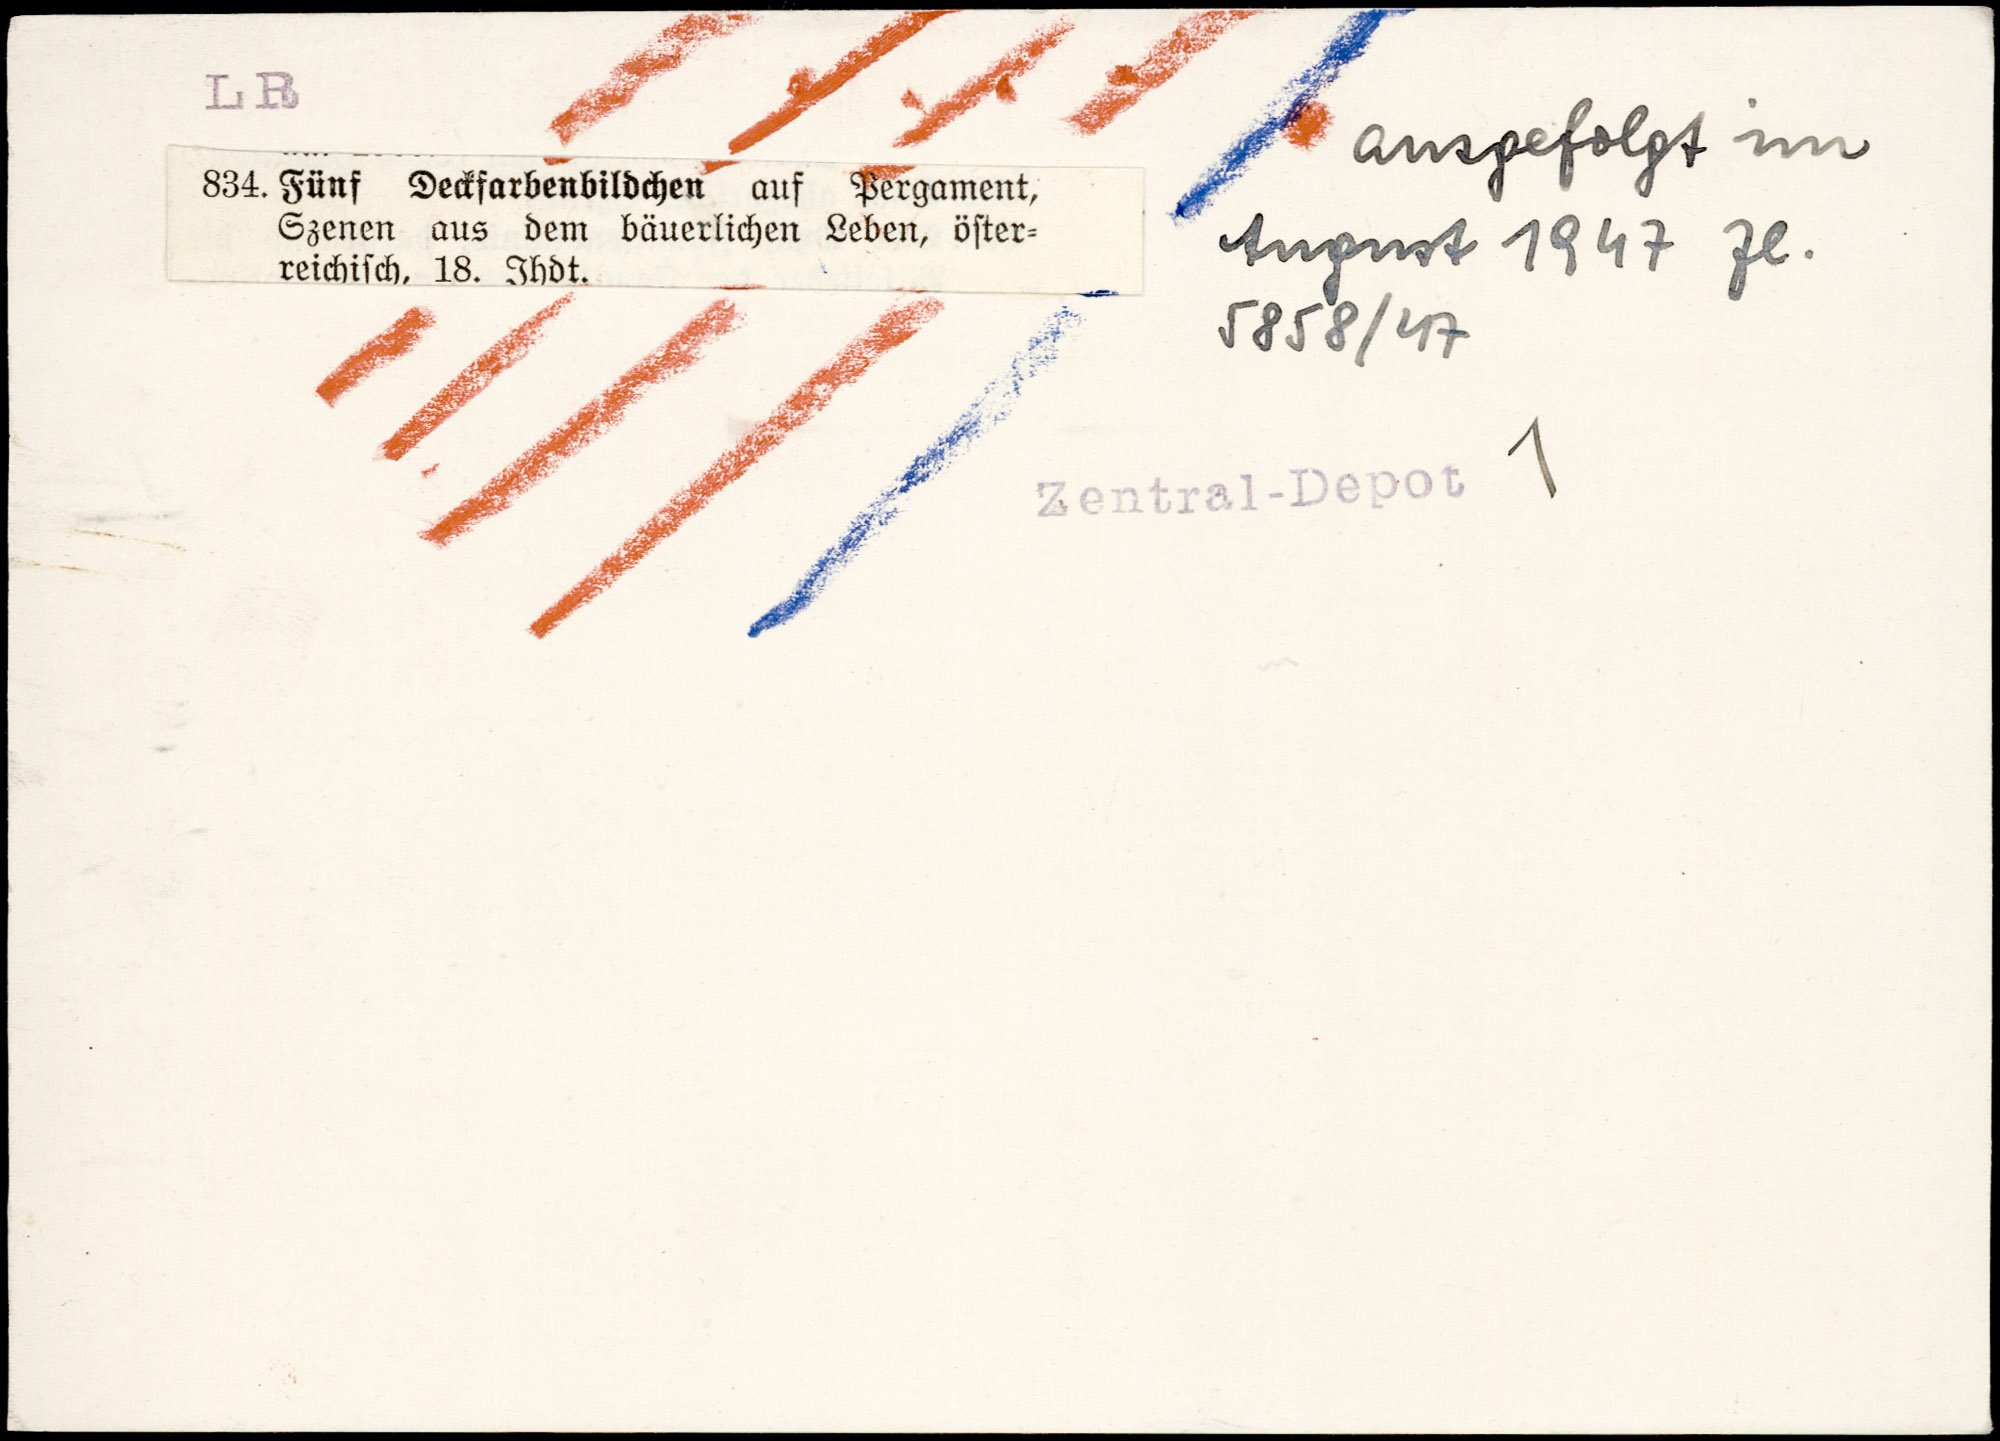 LR
834. Fünf Deckfarbenbildchen auf Pergament,
Szenen aus dem bäuerlichen Leben, öster-
reichisch, 18. Jhdt.
ausgefolgt im
August 1947 Zl.
5858/47
Zentral-Depot